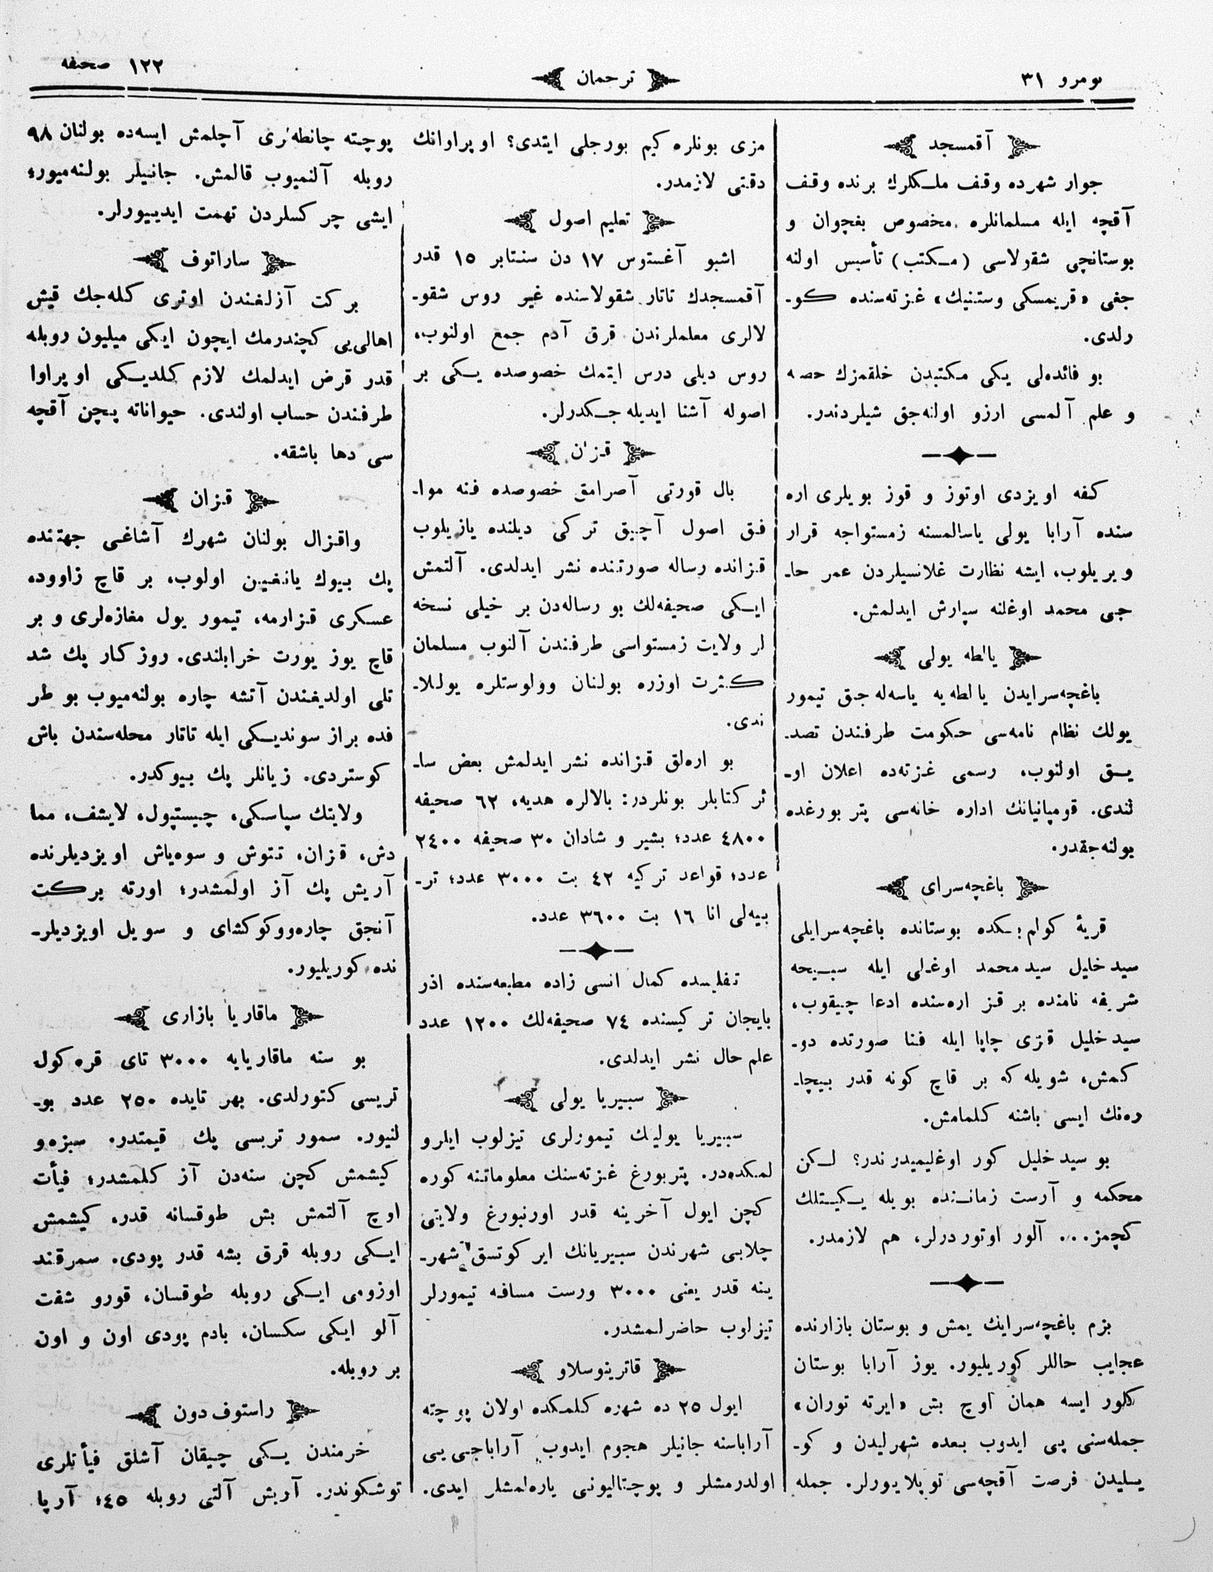 نومرو ٣١
ترجمان
١٢٢ صحيفه
آقمسجد
جوار شهرده وقف ملكلرك برنده وقف
آقچه ايله مسلمانلره مخصوص بغچوان و
بوستانچى شقولاسى (مكتب) تأسيس اولنه
جغى «قريمسكى وستنيك» غزته‌سنده كو-
رلدى.
بو فائده‌لى يكى مكتبدن خلقمزك حصه
و علم آلمسى ارزو اولنه‌جق شيلردندر.
كفه اويزدى اوتوز و قوز بويلرى اره
سنده آرابا يولى ياسالمسنه زمستواجه قرار
ويريلوب، ايشه نظارت غلانسيلردن عمر حا-
جى محمد اوغلنه سپارش ايدلمش.
يالطه يولى
باغچه‌سرايدن يالطه‌يه ياسه‌له‌جق تيمور
يولك نظام نامه‌سى حكومت طرفندن تصد-
يق اولنوب، رسمى غزته‌ده اعلان او-
لندى. قومپانيانك اداره خانه‌سى پتربورغده
بولنه‌جقدر.
باغچه‌سراى
قريۀ كوام بكده بوستانده باغچه‌سرايلى
سيدخليل سيدمحمد اوغلى ايله سبيحه
شريفه نامنده بر قز اره‌سنده ادعا چيقوب،
سيدخليل قزى چاپا ايله فنا صورتده دو-
كمش، شويله‌كه بر قاچ كونه قدر بيچا-
ره‌نك ايسى باشنه كلمامش.
بو سيدخليل كور اوغليميدرندر؟ لكن
محكمه و آرست زماننده بويله يكيتلك
كچمز... آلور اوتوردرلر، هم لازمدر.
بزم باغچه‌سرايك يمش و بوستان بازارنده
عجايب حاللر كوريليور. يوز آرابا بوستان
كلور ايسه همان اوچ بش «ايرته توران»
جمله‌سنى پى ايدوب بعده شهرليدن و كو-
يليدن فرصت آقچه‌سى توپلايورلر. جمله
مزى بونلره كيم بورجلى ايتدى؟ اوپراوانك
دقتى لازمدر.
تعليم اصول
اشبو آغستوس ١٧ دن سنتابر ١٥ قدر
آقمسجدك تاتار شقولاسنده غير روس شقو-
لالرى معلملرندن قرق آدم جمع اولنوب،
روس ديلى درس ايتمك خصوصده يكى بر
اصوله آشنا ايديله‌جكدرلر.
قزان
بال قورتى آصرامق خصوصده فنه موا-
فق اصول آچيق تركى ديلنده يازيلوب
قزانده رساله صورتنده نشر ايدلدى. آلتمش
ايكى صحيفه‌لك بو رساله‌دن بر خيلى نسخه
لر ولايت زمستواسى طرفندن آلنوب مسلمان
كثرت اوزره بولنان وولوستلره يوللا-
ندى.
بو اره‌لق قزانده نشر ايدلمش بعض سا-
ئر كتابلر بونلردر: بالالره هديه، ٦٢ صحيفه
٤٨٠٠ عدد؛ بشير و شادان ٣٠ صحيفه ٢٤٠٠
عدد؛ قواعد تركيه ٤٢ بت ٣٠٠٠ عدد؛ تر-
بيه‌لى انا ١٦ بت ٣٦٠٠ عدد.
تفليسده كمال انسى زاده مطبعه‌سنده اذر
بايجان تركيسنده ٧٤ صحيفه‌لك ١٢٠٠ عدد
علم حال نشر ايدلدى.
سبيريا يولى
سبيريا يولينك تيمورلرى تيزلوب ايلرو
لمكده‌در. پتربورغ غزته‌سنك معلوماتنه كوره
كچن ايول آخرينه قدر اورنبورغ ولايتى
چلابى شهرندن سبيريانك ايركوتسق شهر-
ينه قدر يعنى ٣٠٠٠ ورست مسافه تيمورلر
تيزلوب حاضرلمشدر.
قاترينوسلاو
ايول ٢٥ ده شهره كلمكده اولان پوچته
آراباسنه جانيلر هجوم ايدوب آراباجى‌يى
اولدرمشلر و پوچتاليونى ياره‌لمشلر ايدى.
پوچته چانطه‌لرى آچلمش ايسه‌ده بولنان ٩٨
روبله آلنميوب قالمش. جانيلر بولنه‌ميور؛
ايشى چركسلردن تهمت ايدييورلر.
ساراتوف
بركت آزلغندن اوترى كله‌جك قيش
اهالى‌يى كچندرمك ايچون ايكى ميليون روبله
قدر قرض ايدلمك لازم كلديكى اوپراوا
طرفندن حساب اولندى. حيواناته پچن آقچه
سى دها باشقه.
قزان
واقزال بولنان شهرك آشاغى جهتنده
پك بيوك يانغين اولوب، بر قاچ زاوود،
عسكرى قزارمه، تيمور يول مغازه‌لرى و بر
قاچ يوز يورت خرابلندى. روزكار پك شد
تلى اولديغندن آتشه چاره بولنه‌ميوب بو طر
فده براز سونديكى ايله تاتار محله‌سندن باش
كوستردى. زيانلر پك بيوكدر.
ولايتك سپاسكى، چيستپول، لايشف، مما
دش، قزان، تتوش و سوه‌ياش اويزديلرنده
آريش پك آز اولمشدر؛ اورته بركت
آنجق چاره‌ووكوكشاى و سويل اويزديلر-
نده كوريليور.
ماقاريا بازارى
بو سنه ماقاريايه ٣٠٠٠ تاى قره‌كول
تريسى كتورلدى. بهر تايده ٢٥٠ عدد بو-
لنيور. سمور تريسى پك قيمتدر. سبزه‌و
كيشمش كچن سنه‌دن آز كلمشدر؛ فيأت
اوچ آلتمش بش طوقسانه قدر. كيشمش
ايكى روبله قرق بشه قدر پودى. سمرقند
اوزومى ايكى روبله طوقسان، قورو شفت
آلو ايكى سكسان، بادم پودى اون و اون
بر روبله.
راستوف دون
خرمندن يكى چيقان آشلق فيأتلرى
توشكوندر. آريش آلتى روبله ٤٥؛ آرپا